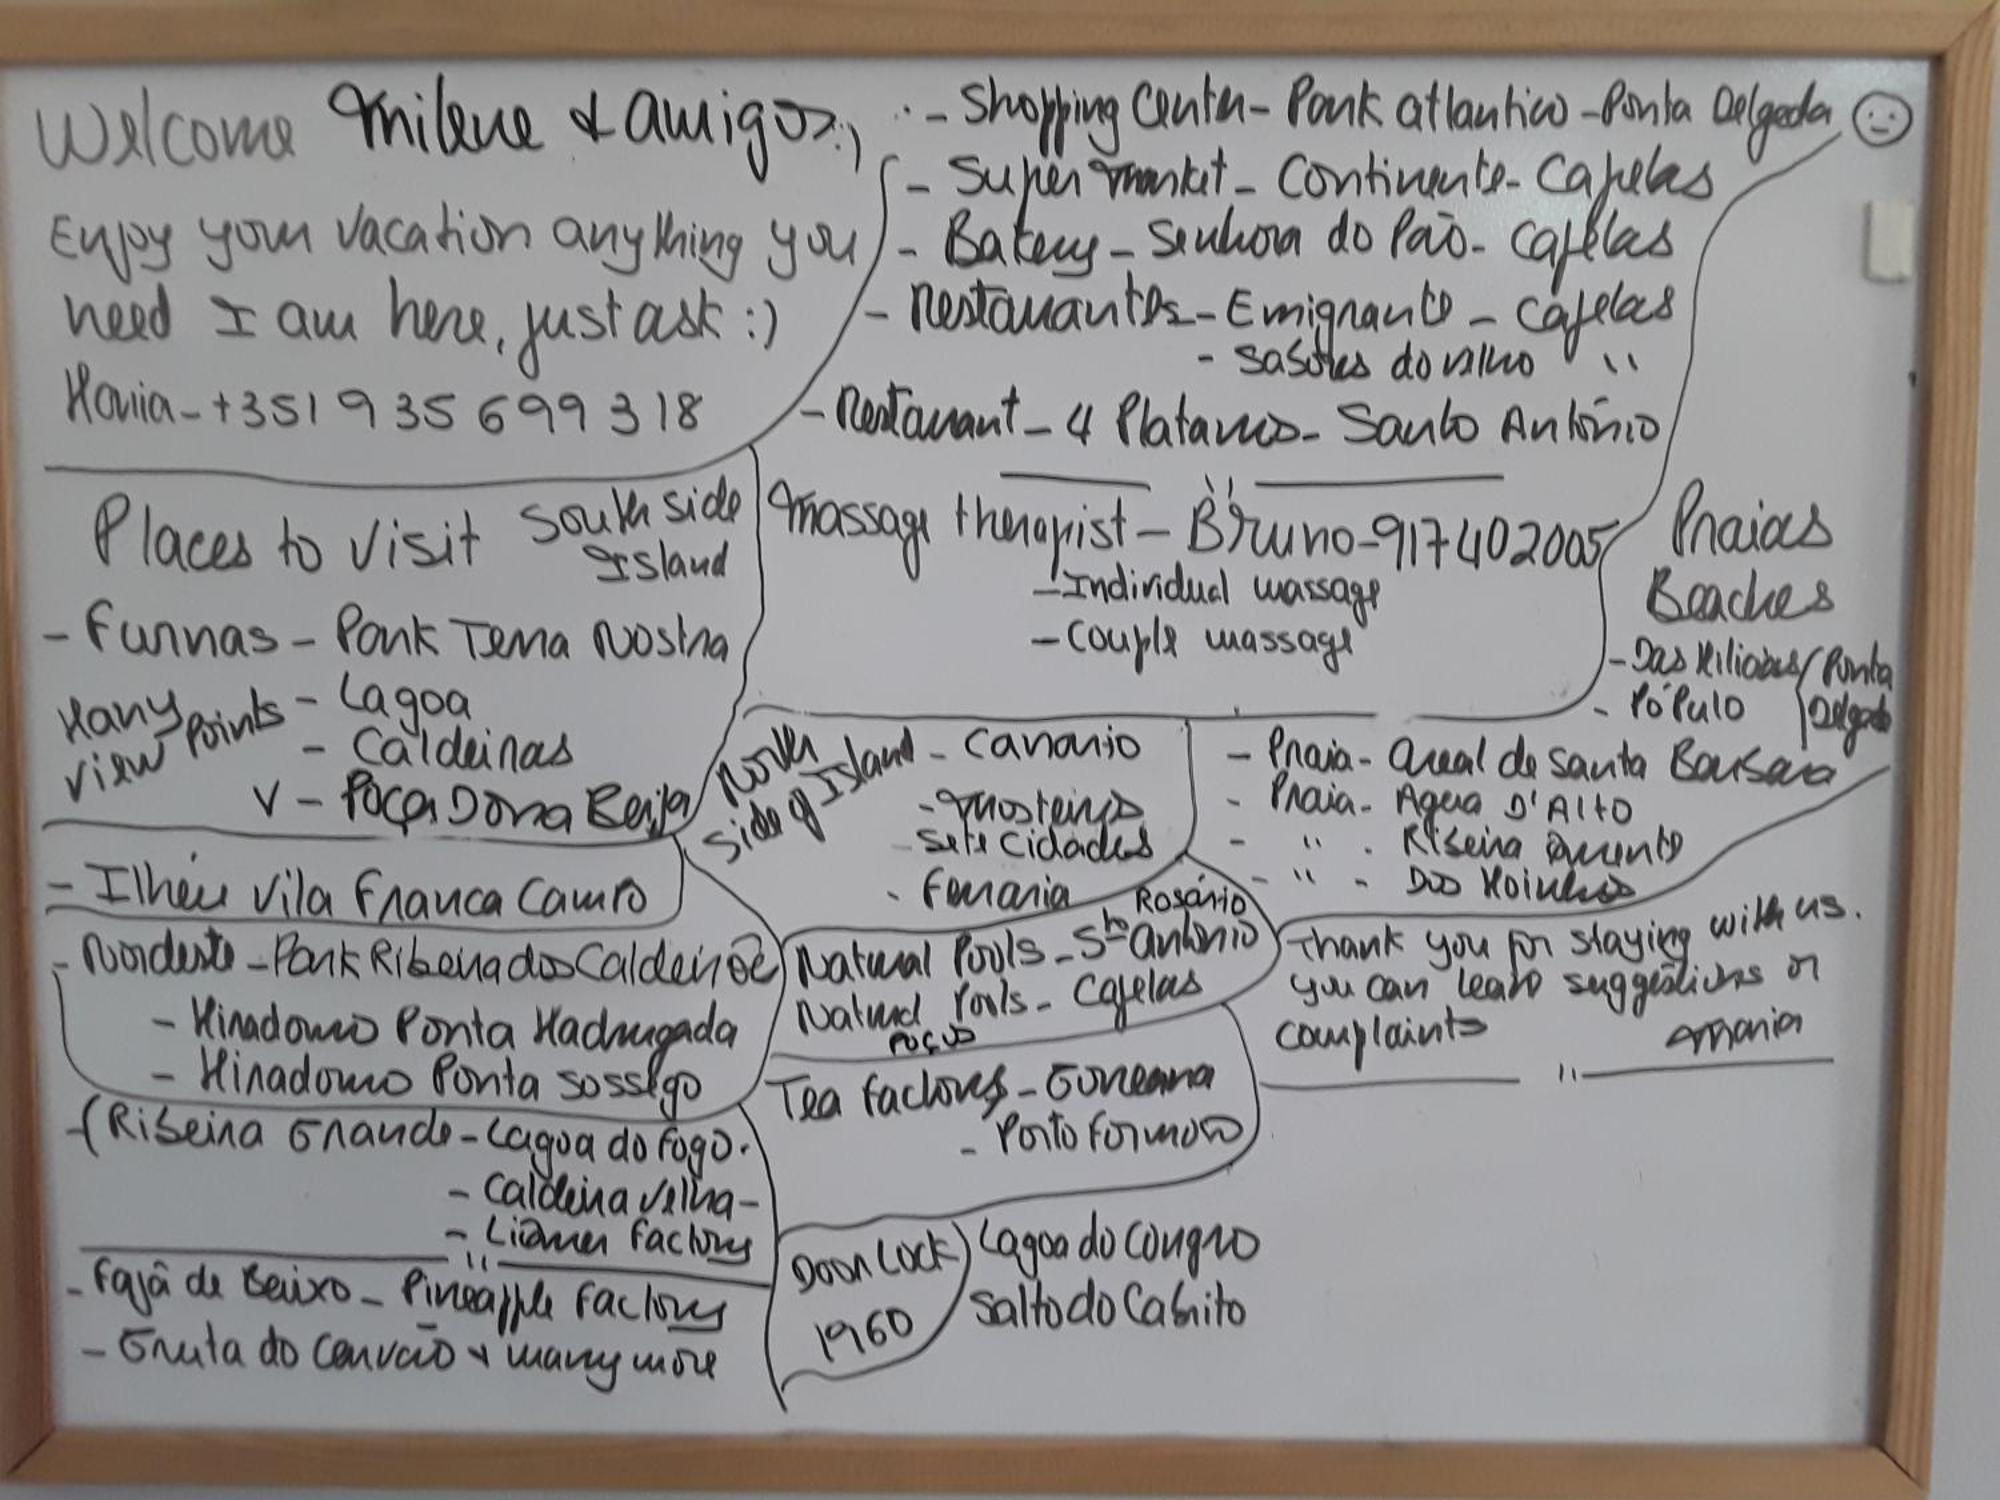 Welcome Milene & amigos :)
Enjoy your vacation anything you
need I am here, just ask :)
Maria - +351 935 699 318
- Shopping Center - Park atlantico - Ponta Delgada
- Super market - Continente - Capelas
- Bakery - Senhora do Pão - Capelas
- Restaurantes - Emigrante - Capelas
- Sabores do velho "
- Restaurant - 4 Platanos - Santo António
Massage therapist - Bruno - 917402005
- Individual massage
- Couple massage
Places to visit South side
Island
- Furnas - Park Terra Nostra
Many view points
- Lagoa
- Caldeiras
V - Poça Dona Beija
- Ilhéu Vila Franca Campo
- Nordeste - Park Ribeira dos Caldeirõe
- Miradouro Ponta Madrugada
- Miradouro Ponta Sossego
- (Ribeira Grande - Lagoa do Fogo.
- Caldeira Velha -
- Liquer Factory
"
- Fajã de Baixo - Pineapple Factory
- Gruta do Carvão & many more
North
side of Island - Canario
- Mosteiros
- Sete Cidades
- Ferraria
Rosário
Natural Pools - Sto António
Natural Pools - Capelas
POÇOS
Tea Factory - Gorreana
- Porto Formoso
Door Lock
1960
Lagoa do Congro
Salto do Cabrito
Praias
Beaches
- Das Milicias / Ponta
- Pópulo / Delgada
- Praia - Areal de Santa Barbara
- Praia - Agua D'Alto
- " - Ribeira Quente
- " - Dos Moinhos
Thank you for staying with us.
you can leave suggestions or
complaints
Maria
"